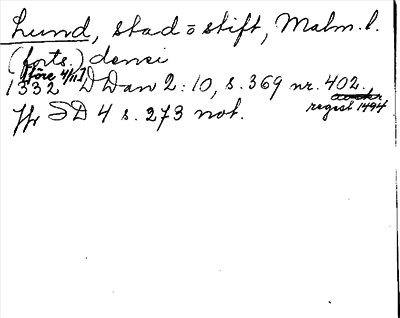 Lund, stad o stift, Malm. l.
(forts.) densi
1332 [före 4/11] DDan 2:10, s. 369 nr. 402.,
regest 1494
Jfr SD 4 s. 273 not.